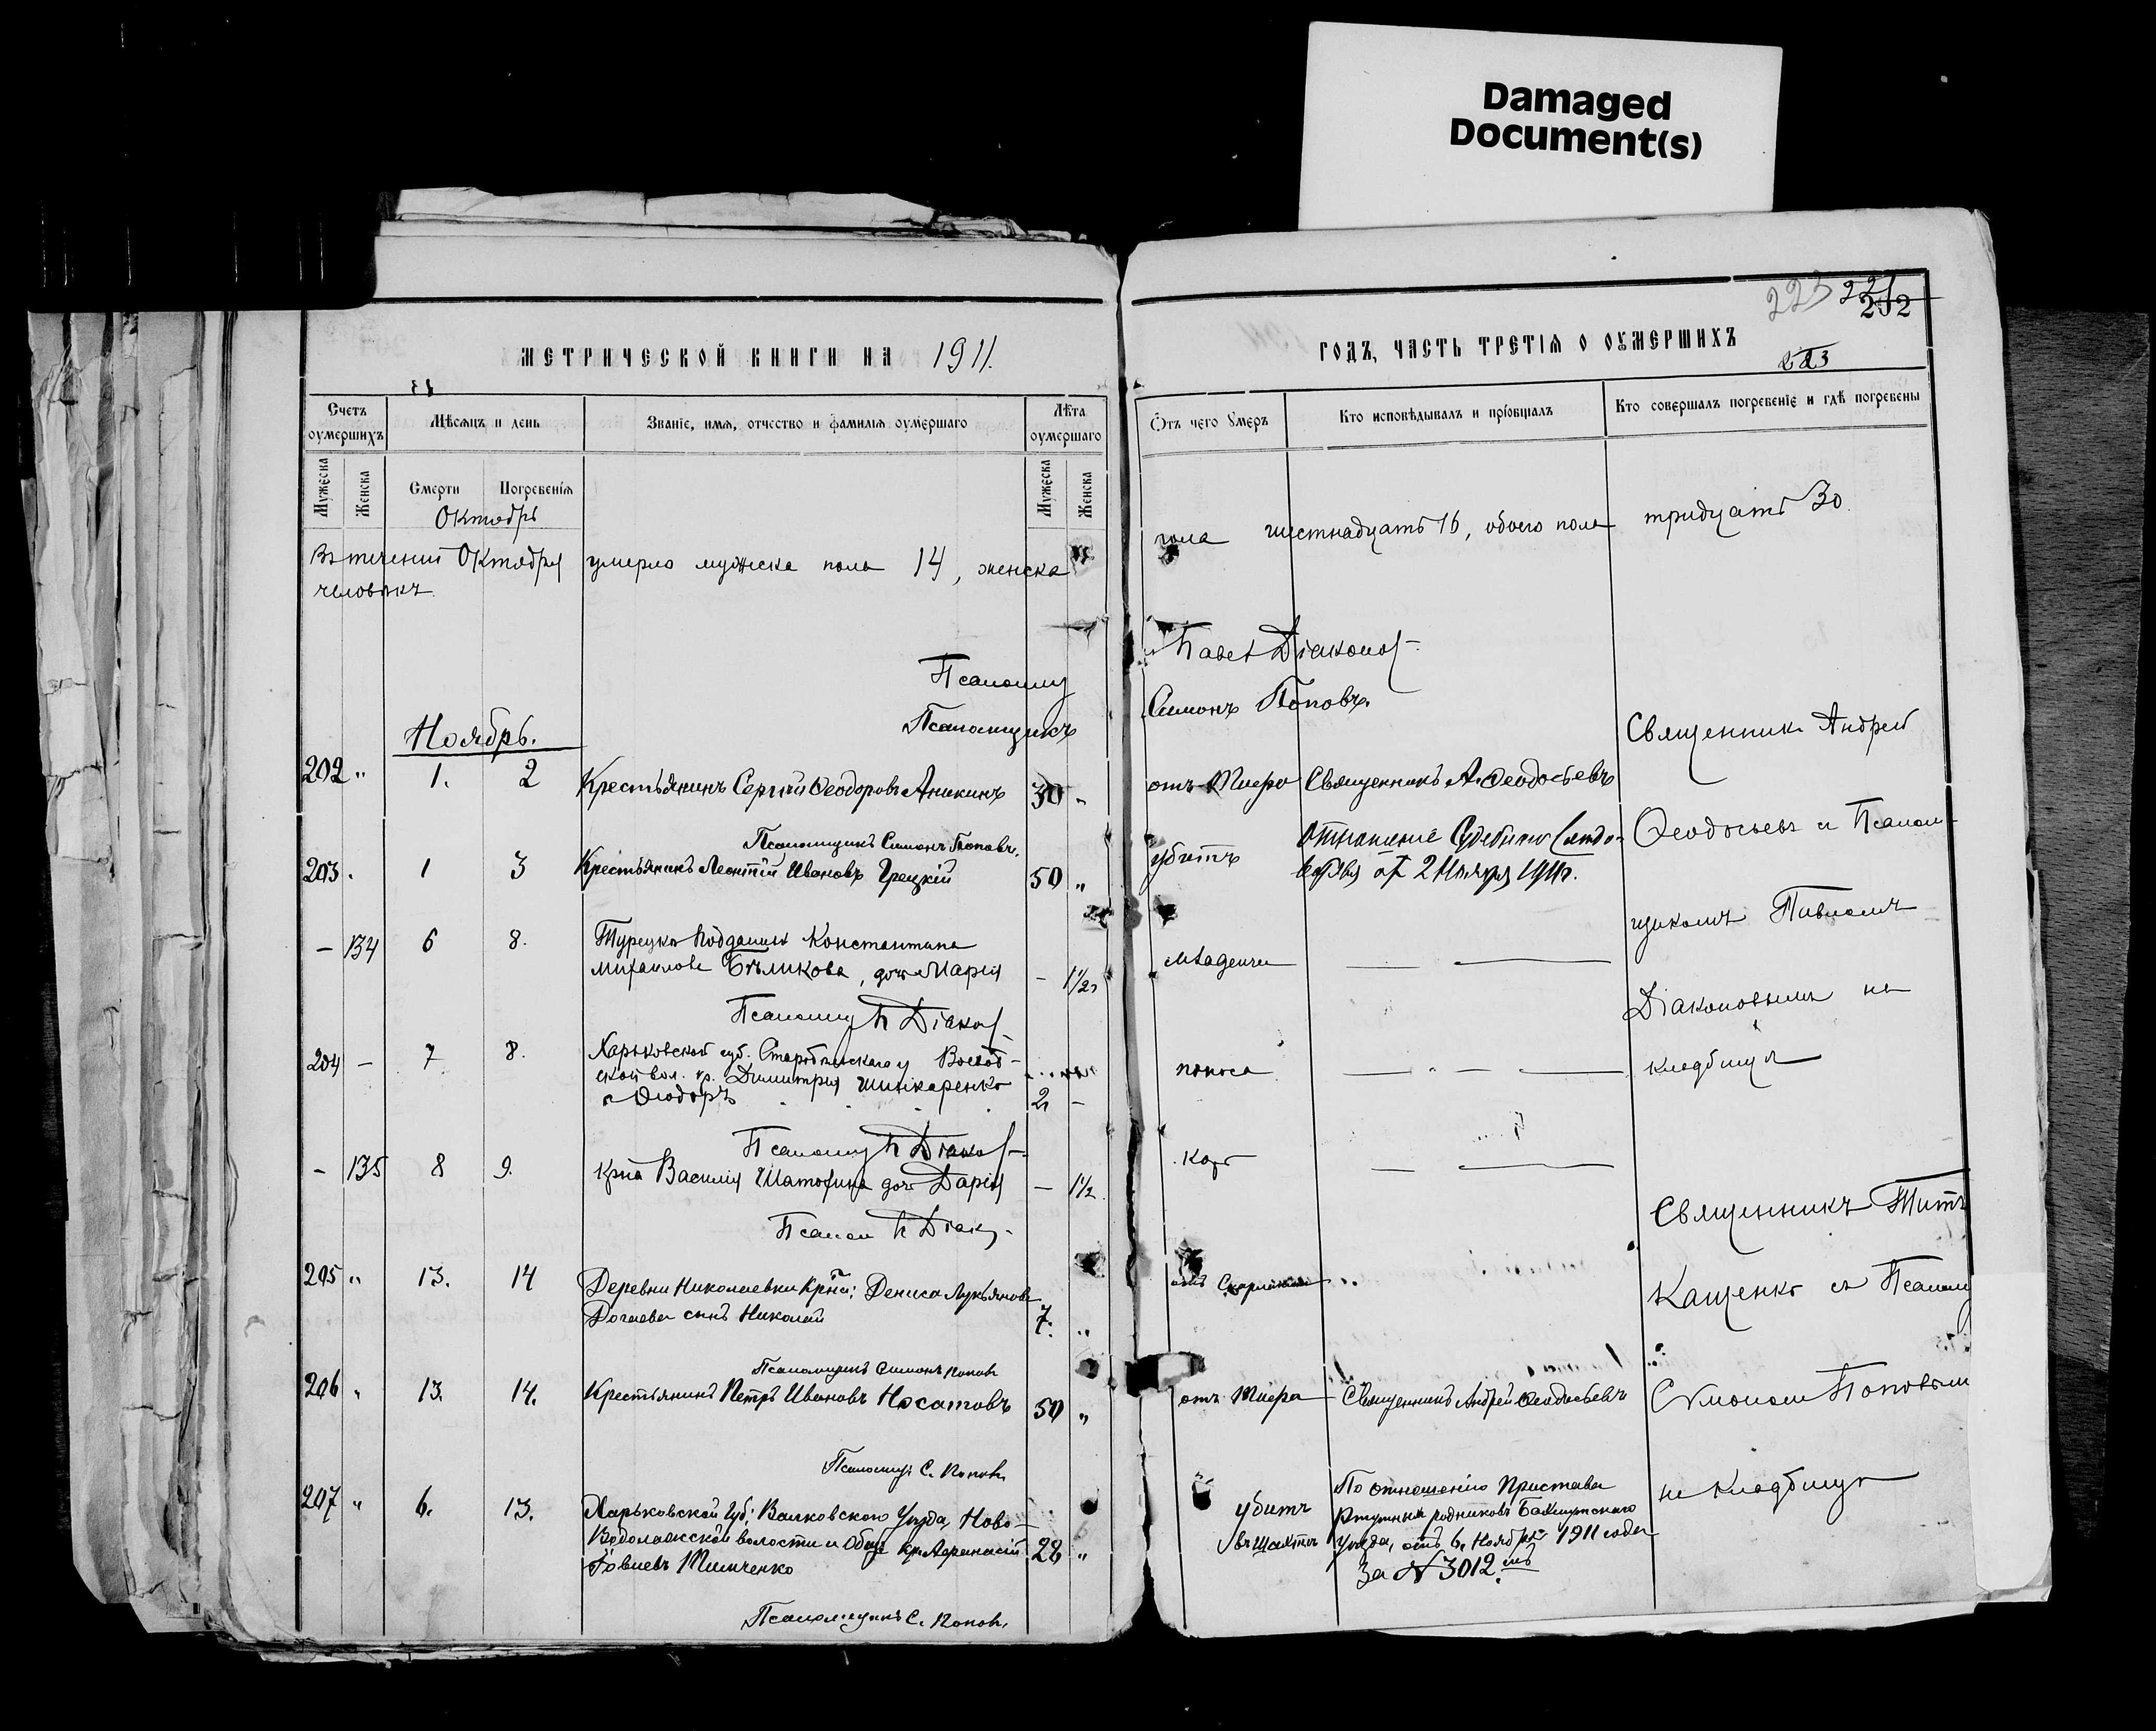 Damaged
Document(s)
223 221
252
МЕТРИЧЕСКОЙ КНИГИ НА 1911.
ГОДЪ, ЧАСТЬ ТРЕТІЯ О ОУМЕРШИХЪ
223
Счетъ оумершихъ
Мѣсяцъ и день
Званіе, имя, отчество и фамилія оумершаго
Лѣта оумершаго
Ѿтъ чего Умеръ
Кто исповѣдывалъ и пріобщалъ
Кто совершалъ погребеніе и гдѣ погребены
Мужеска
Женска
Смерти
Погребенія
Мужеска
Женска
Октябрь
Въ теченіи Октября умерло мужеска пола 14, женска
пола шестнадцать 16, обоего пола тридцать 30.
человѣкъ
Псаломщ
Павел Діаконов
Псаломщикъ
Симонъ Поповъ.
Ноябрь.
202 " 1. 2 Крестьянинъ Сергѣй Ѳеодоровъ Аникинъ 30 "
отъ Тифа Священникъ А. Ѳеодосьевъ
Священник Андрей
Псаломщикъ Симонъ Поповъ.
203. 1 3 Крестьянинъ Леонтій Ивановъ Грецкій 50 "
убитъ
Отношеніе Судебнаго Слѣдо-
вателя от 2 Ноября 1911 г.
Ѳеодосьевъ съ Псалом-
– 134 6 8. Турецко подданнаго Константина
Михайлова Бѣликова, дочь Марія – 1½
младенч
щикомъ Павломъ
Псаломщ П Діакон
Діаконовымъ на
204 – 7 8. Харьковской губ. Старобѣльскаго у
ской вол. кр. Димитрія Шинкаренко
с Ѳеодоръ 2 –
поноса
кладбищѣ
Псаломщ П Діакон
– 135 8 9. Кр-на Василія дочь Дарія – 1½
Корь
Псалом П Діак
Священникъ Титъ
205 " 13. 14 Деревни Николаевки Кр-на: Дениса Лукьянова
сынъ Николай 7. "
отъ Скарлатины
Кащенко съ Псаломщ
Псаломщикъ Симонъ Поповъ
206 " 13. 14. Крестьянинъ Петръ Ивановъ Носатовъ 50 "
отъ Тифа Священникъ Андрей Ѳеодосьевъ
Симоном Поповым
Псаломщ. С. Поповъ
207 " 6. 13. Харьковской Губ: Валковскаго Уѣзда, Ново-
Водолажской волости и Общ кр. Аѳанасій
Іовлевъ Тимченко 28 "
убитъ
въ шахтѣ
По отношенію Пристава
Ртутныхъ рудниковъ Бахмутскаго
Уѣзда, отъ 6. Ноября 1911 года
За № 3012.
на Кладбищѣ
Псаломщикъ С. Поповъ.